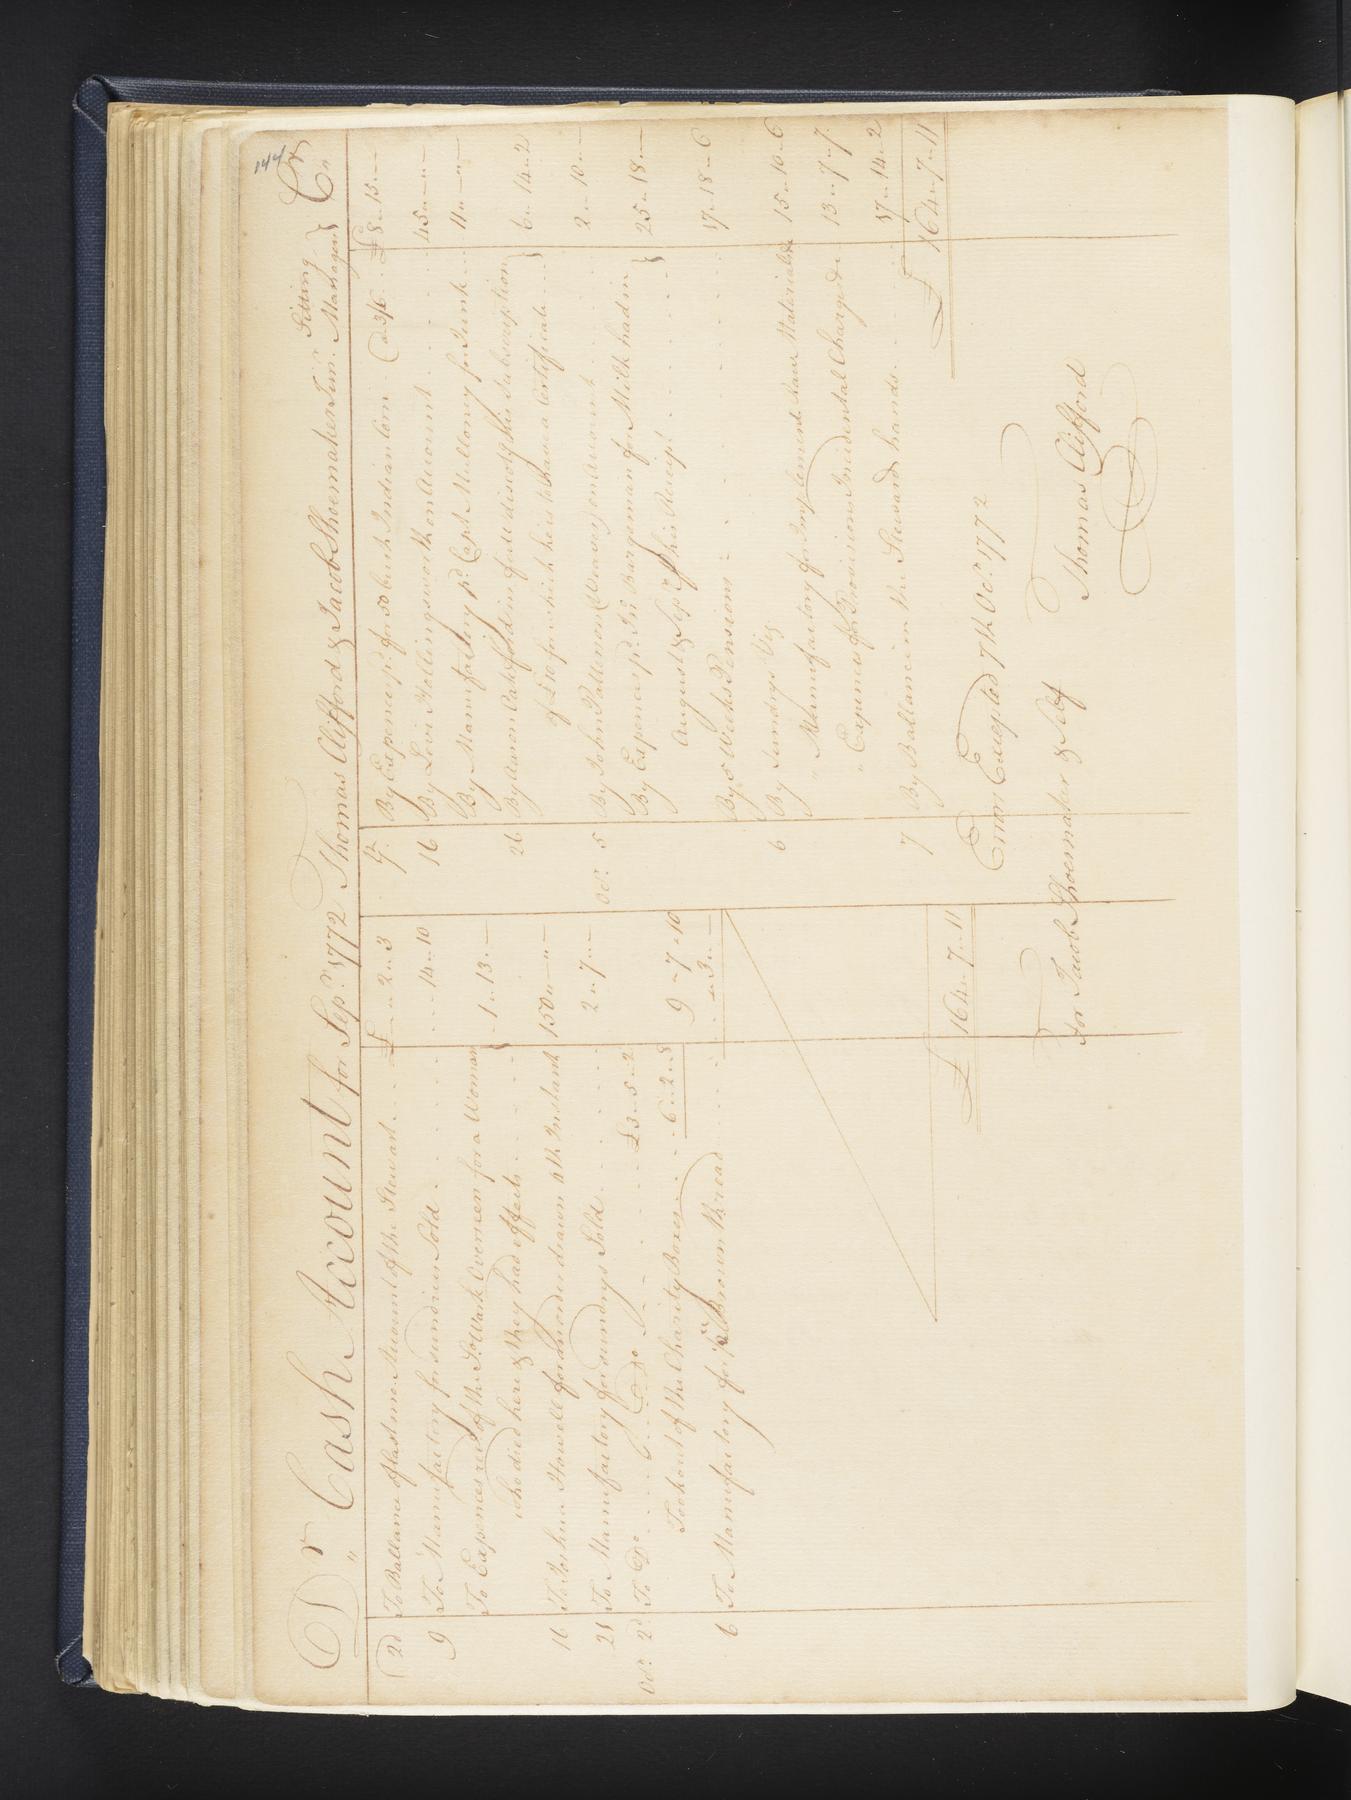 144
Dr Cash Account for Sepr. 1772 Thomas Clifford & Jacob Shoemaker Junr. Sitting Managers } Cr
2d To Ballance of last mo. Account of the Steward . . . £ " 2 " 3
9 To Manufactory for sundries Sold . . . " 14 " 10
To Expences recd. of the So. Wark Overseers for a Woman
who died here & they had effects . . . } 1 " 13 " —
16 To Joshua Howell for an order drawn 4th Instant 150 " — " —
21 To Manufactory for sundrys Sold . . . 2 " 7 " —
Octr. 2d To Do . . . Do . . . £3 " 5 " 2
Took out of the Charity Boxes . . 6 " 2 " 8 9 " 7 " 10
6 To Manufactory for Brown thread . . . " 3 " —
£ 164 " 7 " 11
By Expences pd. for 50 bush Indian Corn @ 3/6 . . £8 " 15 " —
16 By Levi Hollingsworth on Account . . . 45 " — " —
By Manufactory pd. Capt. Mullowney for Junk . . . 11 " — " —
26 By Aaron Oakford in full discot. of his Subscription
of £10 for which he is to have a Certificate . . . } 6 " 14 " 2
Octr. 5 By John Patterson (Weaver) on Account . . . 2 " 10 " —
By Expences pd. Jno. Bargeman for Milk had in
August & Sepr. of his Receipt } 25 " 18 " —
By 5 Weeks Pensions . . . 17 " 18 " 6
6 By Sundrys Viz
" Manufactory for Implements Raw Materials &c 15 " 10 " 6
" Expences for Provisions Incidental Charges &c 13 " 7 " 7
7 By Ballance in the Steward hands . . . 17 " 14 " 2
£ 164 " 7 " 11
Errors Excepted 7th Octr. 1772
for Jacob Shoemaker & Self Thomas Clifford